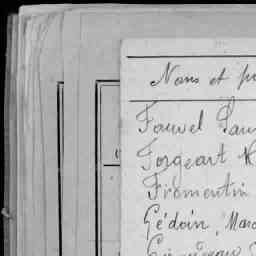 Noms et pr
Fauvel Pau
Forgeart
Fromentin
Gédoin, Marc